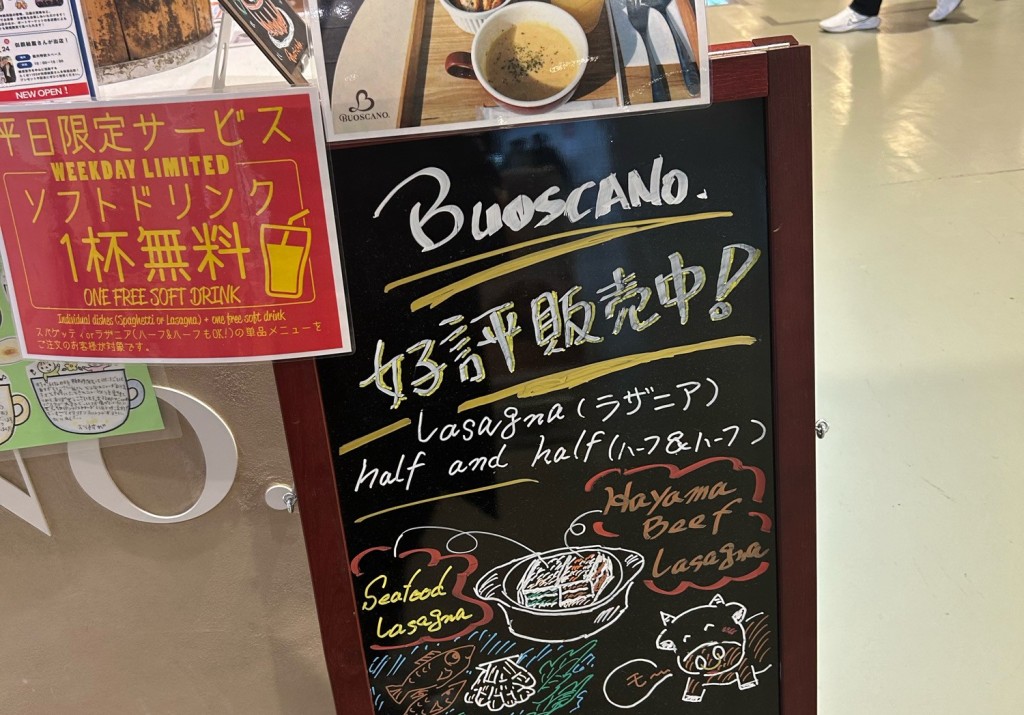 NEW OPEN！
平日限定サービス
WEEKDAY LIMITED
ソフトドリンク
1杯無料
ONE FREE SOFT DRINK
Individual dishes (Spaghetti or Lasagna) + one free soft drink
スパゲッティorラザニア(ハーフ&ハーフもOK!)の単品メニューを
ご注文のお客様が対象です。
BUOSCANO.
BUOSCANO.
好評販売中!
Lasagna (ラザニア)
half and half (ハーフ&ハーフ)
Hayama
Beef
Lasagna
Seafood
Lasagna
モ〜
NO.